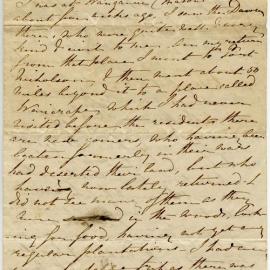 I was at Wanganui (Mason's
about four weeks ago, I saw the Davis's
there, who were quite well &
kind I went to me. On my return
from that place I went to Port
Nicholson. I then went about 50
miles beyond it to a place called
Wairarapa, which I had never
visited before the residents there
are new comers, who having been
beaten formerly in their wars
had deserted their land, but who
have now lately returned I
did not see many of them as they
were in the woods, look
ing for food, having not yet any
regular plantations. I had an
there was